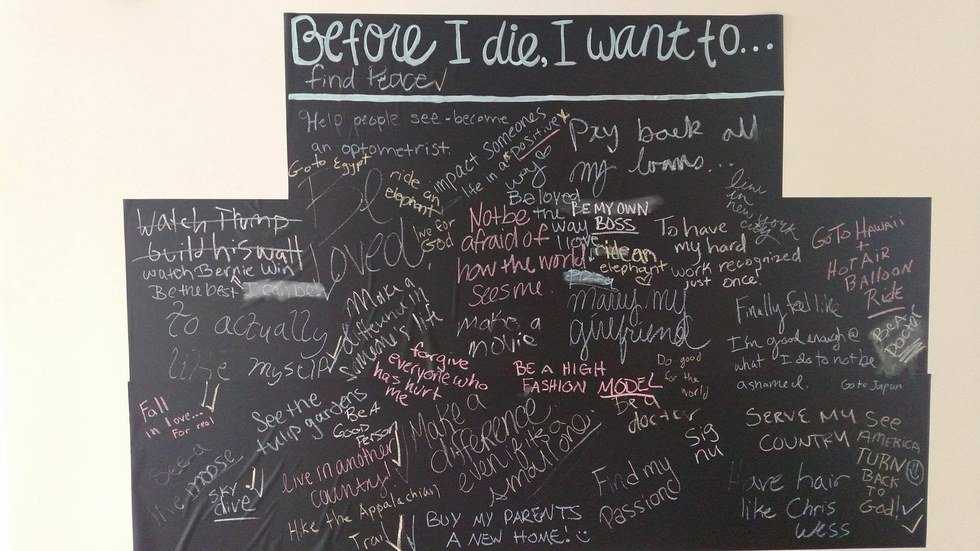 Before I die, I want to...
find peace
Help people see - become
an optometrist.
impact someones
life in a positive
way
Pay back all
my loans...
Go to Egypt
ride an
elephant
live for
God
Be
loved.
Beloved
the
way
I love
BE MY OWN
BOSS
live
in
new york
city
Not be
afraid of
how the world
sees me.
ride an
elephant
To have
my hard
work recognized
just once!
GO TO HAWAII
+
HOT AIR
BALLOON
RIDE
Watch Trump
build his wall
watch Bernie win
Be the best I can be
To actually
like myself
Make a
different in
someone's life
make a
movie
marry my
girlfriend
Finally feel like
I'm good enough @
what I do to not be
ashamed.
BE A
DOCTOR
Go to Japan
forgive
everyone who
has hurt
me
BE A HIGH
FASHION MODEL
Do good
for the
world
be a
doctor
Fall
in love...
For real
See the
tulip gardens
Be A
Good
Person
Make a
difference
even if it's a
small one.
sig
nu
SERVE MY
COUNTRY
SEE
AMERICA
TURN
BACK
TO
God!
See a
moose
sky
dive
live in another
country!
Hike the Appalachian
Trail
BUY MY PARENTS
A NEW HOME!
Find my
passion
Have hair
like Chris
Wess